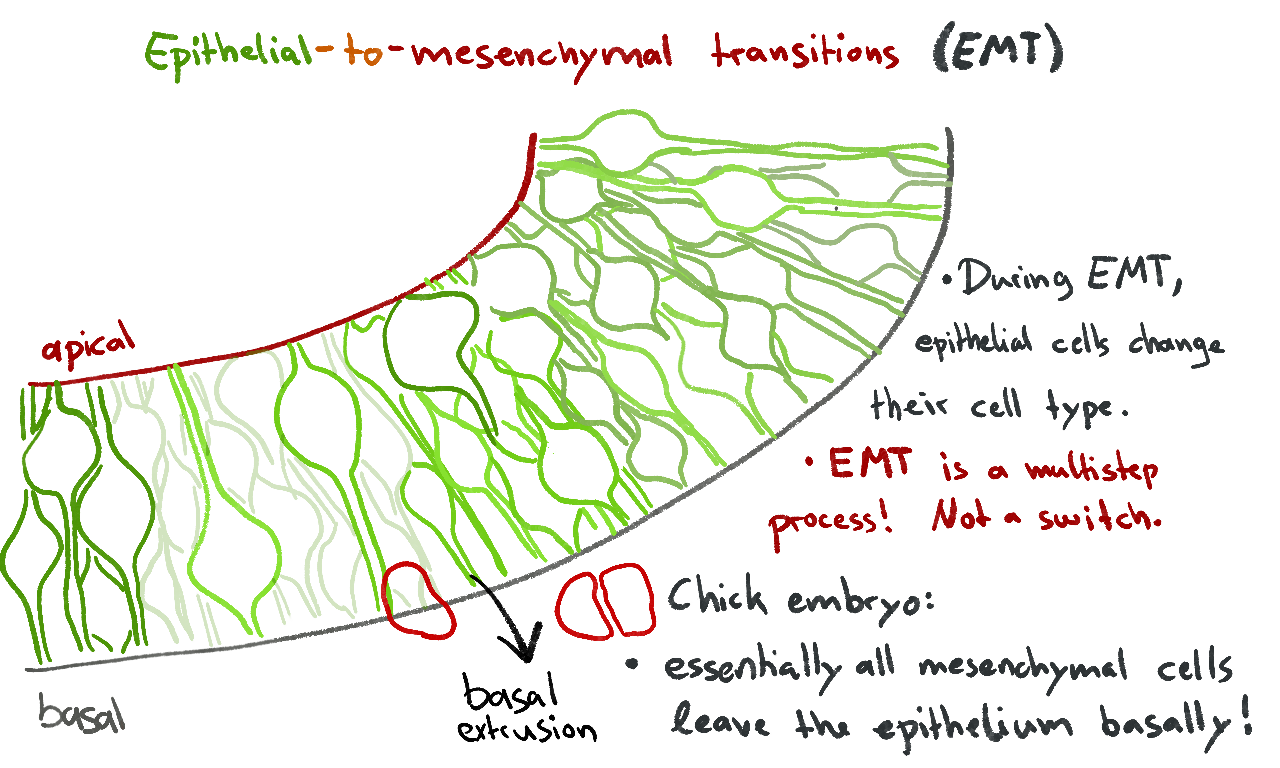 Epithelial-to-mesenchymal transitions (EMT)
apical
• During EMT,
epithelial cells change
their cell type.
• EMT is a multistep
process! Not a switch.
Chick embryo:
• essentially all mesenchymal cells
leave the epithelium basally!
basal
extrusion
basal